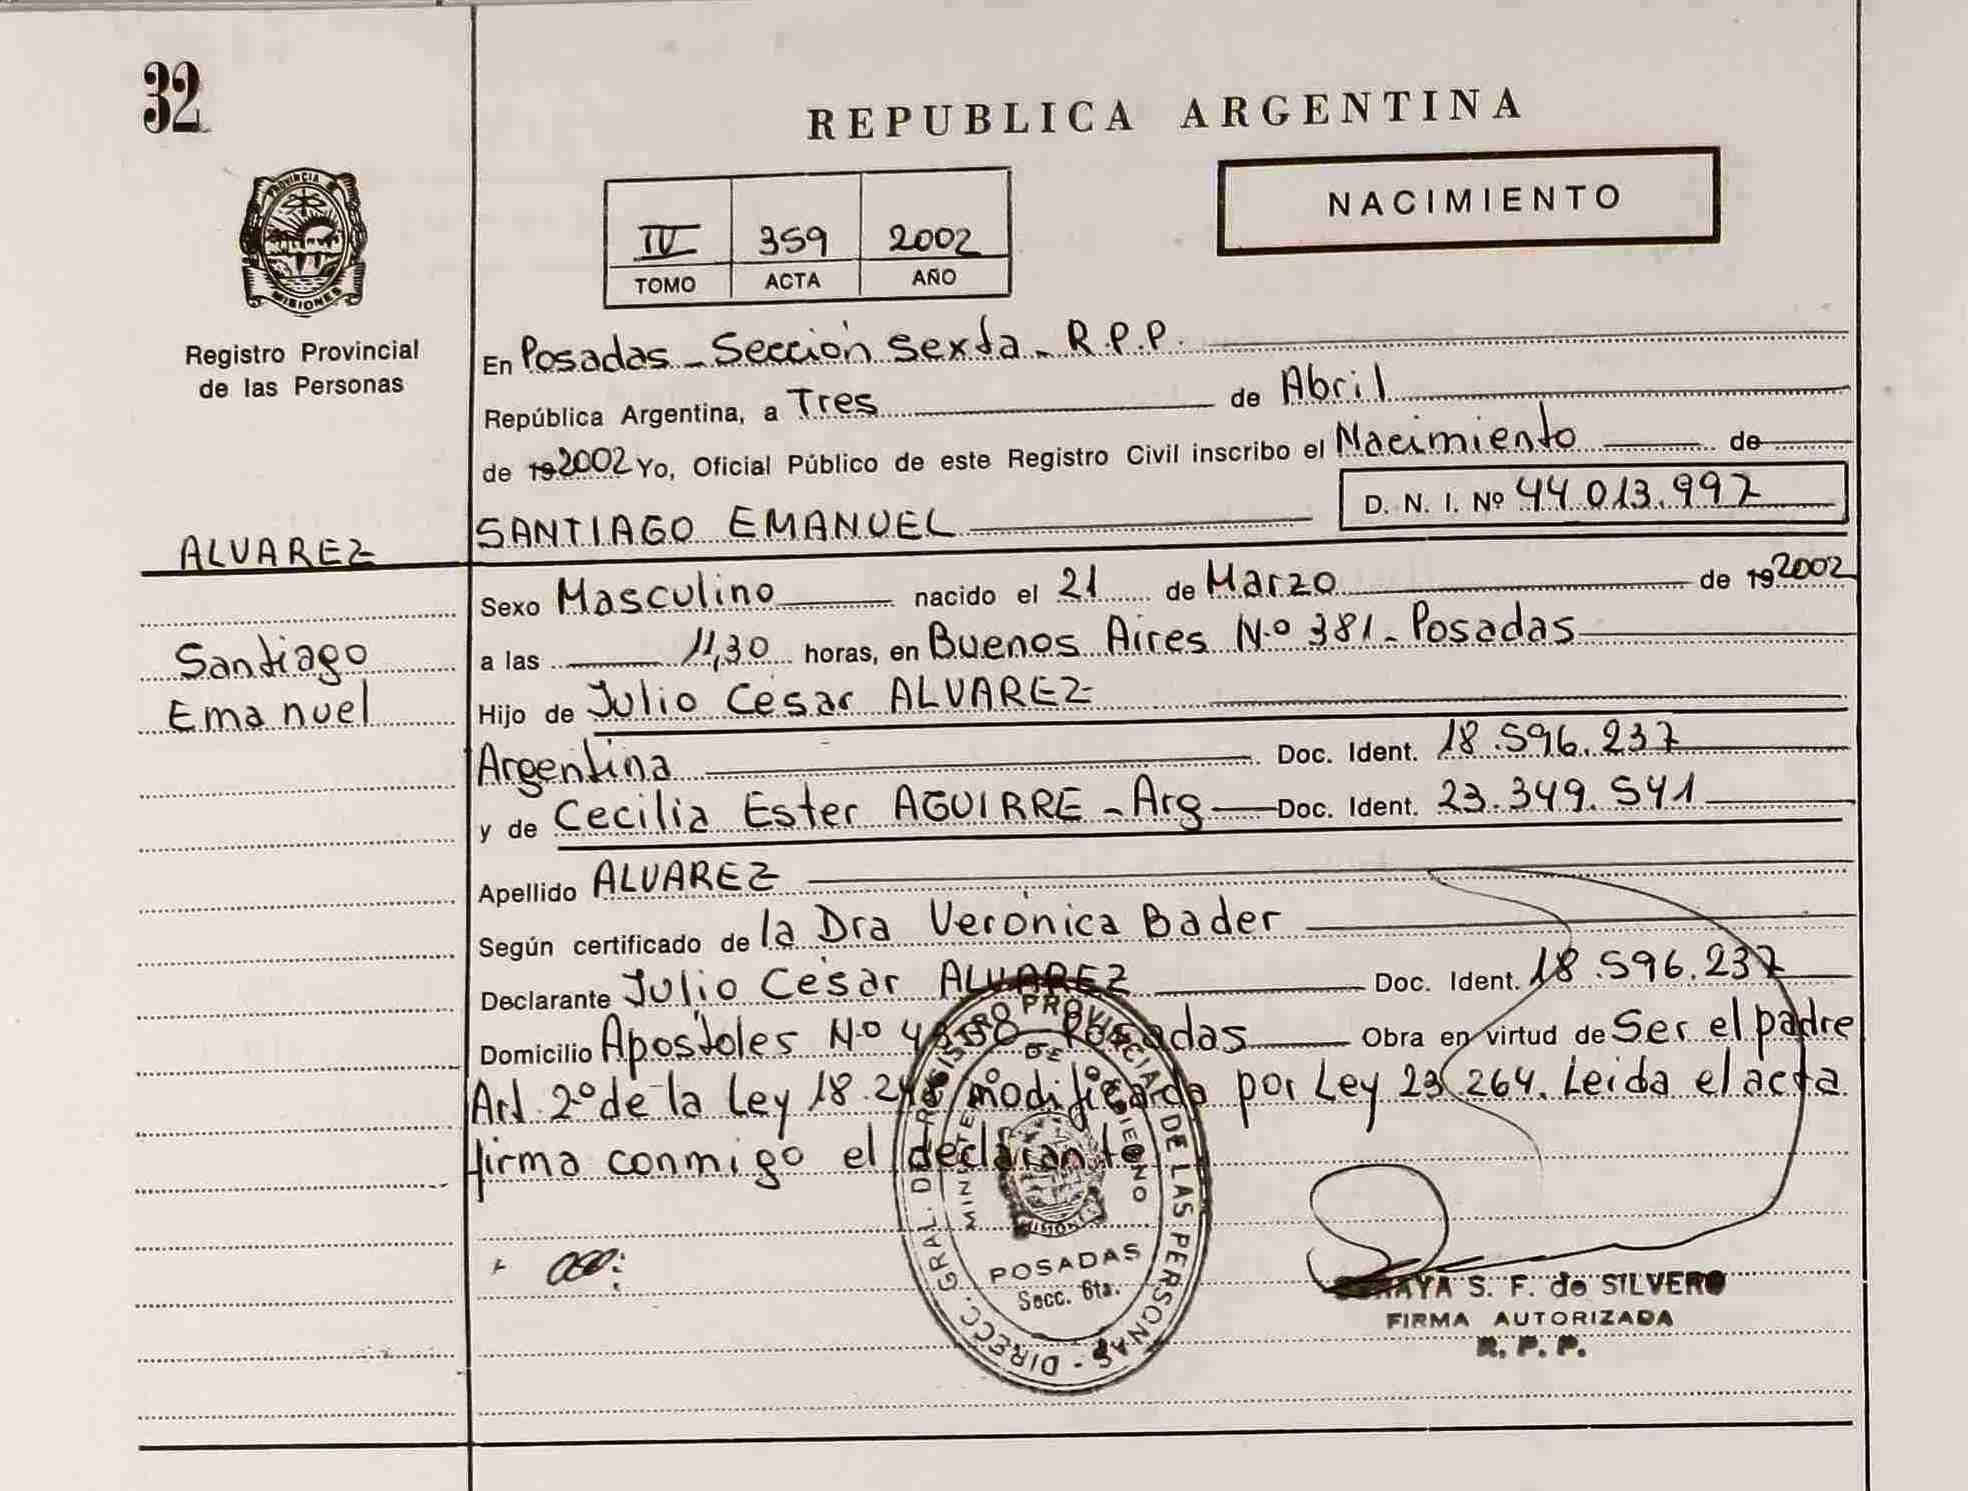 32
REPUBLICA ARGENTINA
PROVINCIA DE
MISIONES
IV 359 2002
TOMO ACTA AÑO
NACIMIENTO
Registro Provincial
de las Personas
En Posadas - Sección Sexta - R.P.P.
República Argentina, a Tres de Abril
de 19 2002 Yo, Oficial Público de este Registro Civil inscribo el Nacimiento de
D. N. I. Nº 44.013.997
ALVAREZ SANTIAGO EMANUEL
Sexo Masculino nacido el 21 de Marzo de 19 2002
Santiago
a las 11,30 horas, en Buenos Aires N.º 381 - Posadas
Emanuel
Hijo de Julio César ALVAREZ
Argentina Doc. Ident. 18.596.237
y de Cecilia Ester AGUIRRE - Arg Doc. Ident. 23.349.541
Apellido ALVAREZ
Según certificado de la Dra Verónica Bader
Declarante Julio César ALVAREZ Doc. Ident. 18.596.237
Domicilio Apóstoles N.º Posadas Obra en virtud de Ser el padre
Art. 2º de la Ley 18.248 modificada por Ley 23.264. Leida el acta
firma conmigo el declarante
DIRECC. GRAL. DE REGISTRO PROVINCIAL DE LAS PERSONAS
MINISTERIO DE GOBIERNO
MISIONES
POSADAS
Secc. 6ta.
S. F. de SILVERO
FIRMA AUTORIZADA
R. P. P.